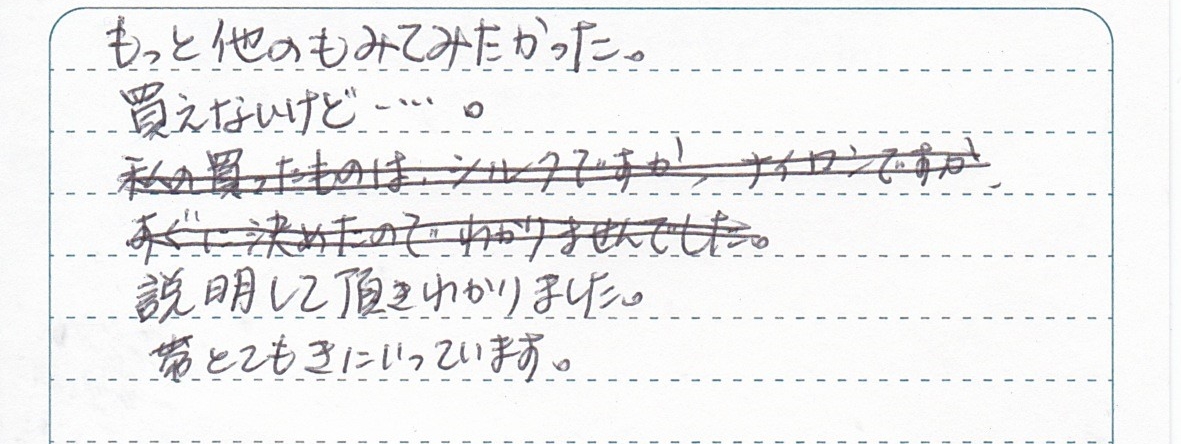 もっと他のもみてみたかった。
買えないけど……。
私の買ったものは、シルクですか、ナイロンですか、
すぐに決めたのでわかりませんでした。
説明して頂きわかりました。
帯とてもきにいっています。